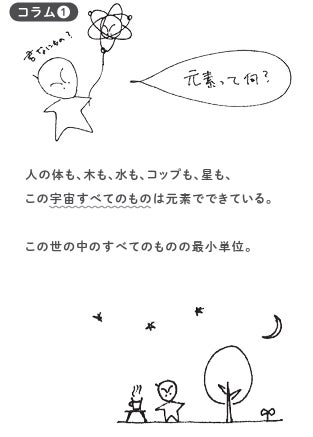 コラム1
君ないもの?
元素って何?
人の体も、木も、水も、コップも、星も、
この宇宙すべてのものは元素でできている。
この世の中のすべてのものの最小単位。